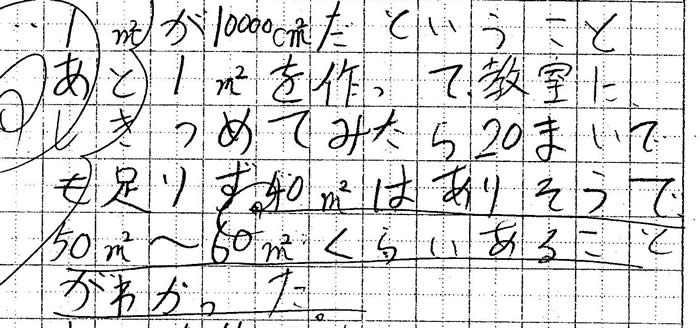 1㎡が10000c㎡だということ
あと1㎡を作って、教室に
しきつめてみたら20まいで
も足りず、40㎡はありそうで、
50㎡〜60㎡くらいあること
がわかった。